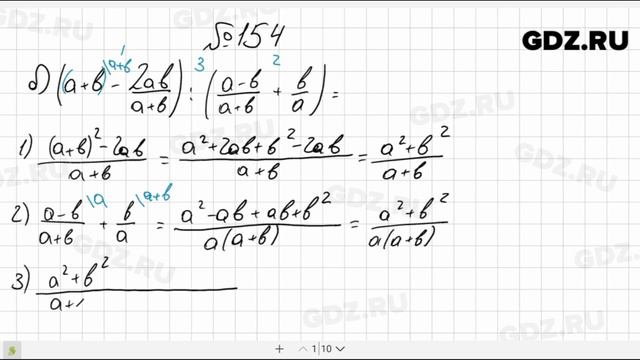 №154
GDZ.RU
б) (a+b \a+b - 2ab/(a+b)) : ((a-b)/(a+b) + b/a) =
1 3 2
1) ((a+b)² - 2ab)/(a+b) = (a²+2ab+b²-2ab)/(a+b) = (a²+b²)/(a+b)
2) (a-b)/(a+b) \a + b/a \a+b = (a²-ab+ab+b²)/(a(a+b)) = (a²+b²)/(a(a+b))
3) (a²+b²)/(a+
1 10